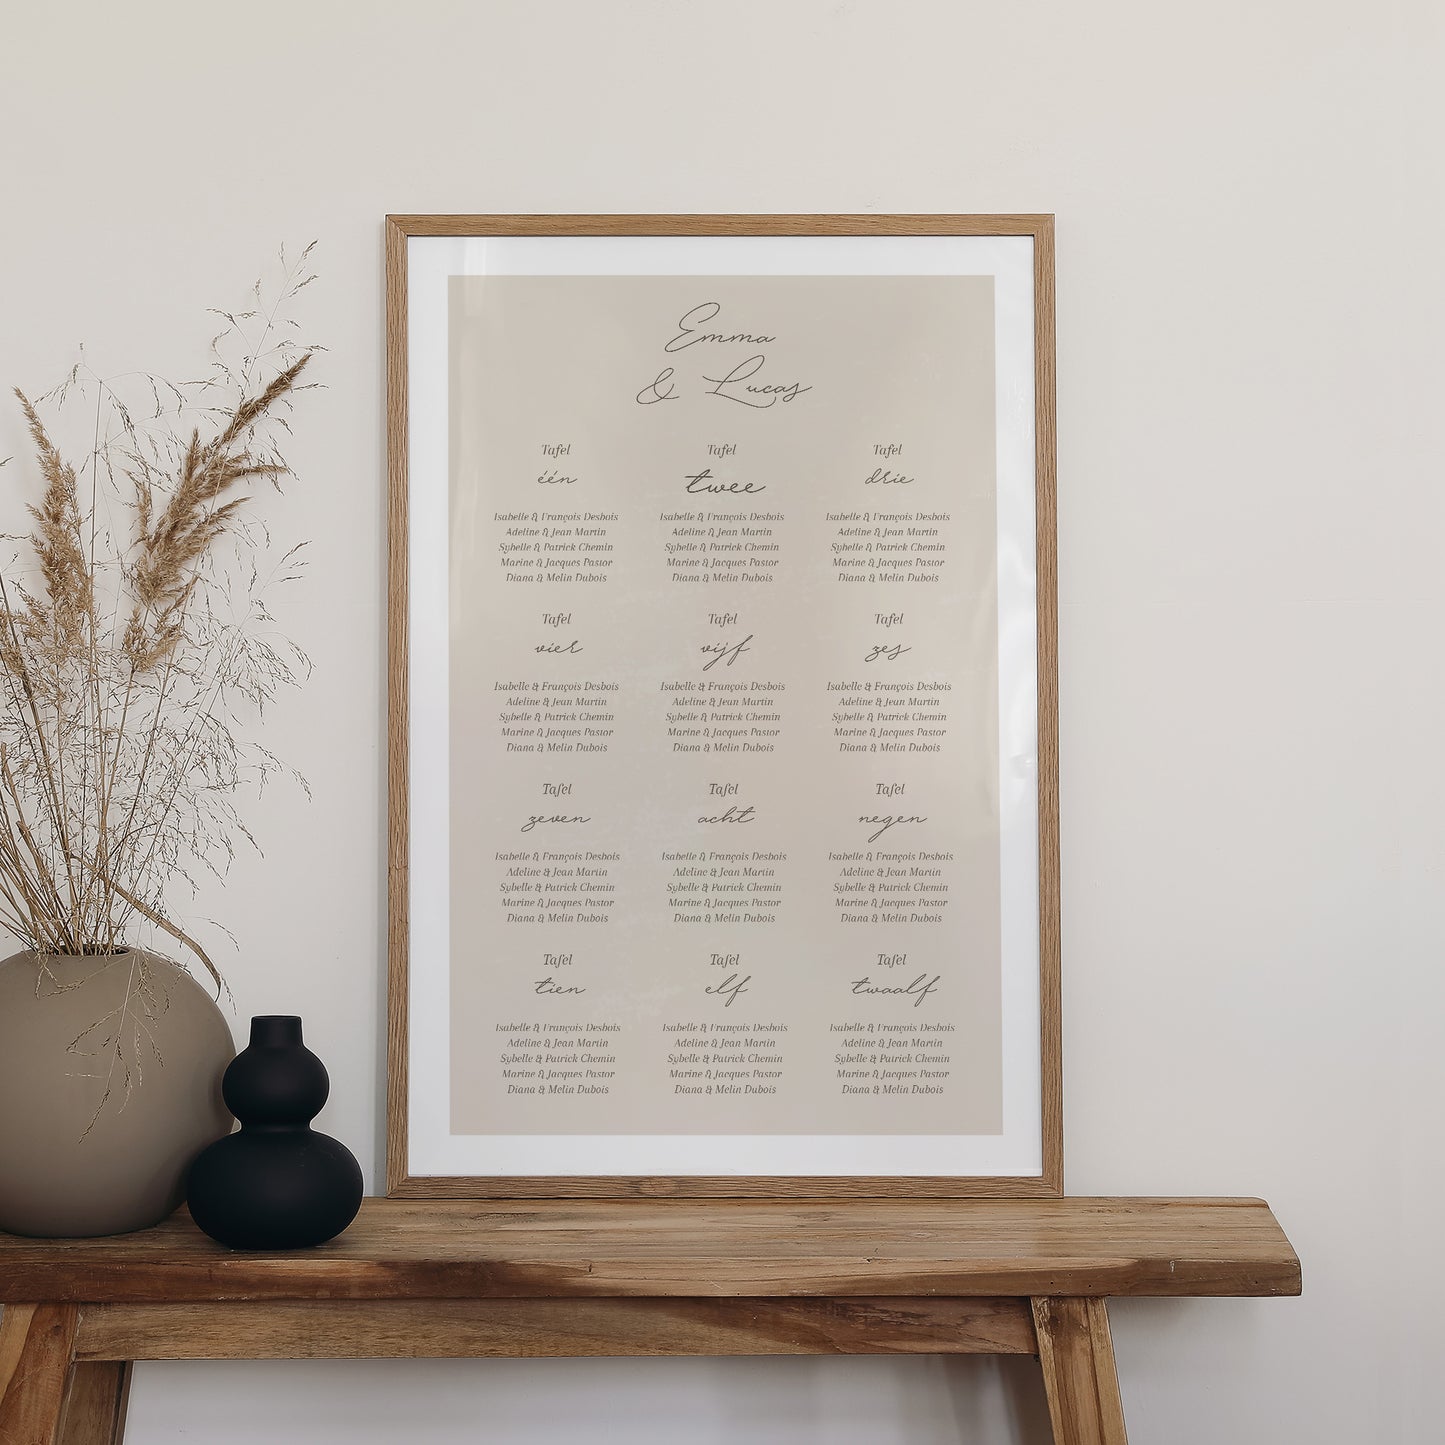 Emma
& Lucas
Tafel
één
Isabelle & François Desbois
Adeline & Jean Martin
Sybelle & Patrick Chemin
Marine & Jacques Pastor
Diana & Melin Dubois
Tafel
twee
Isabelle & François Desbois
Adeline & Jean Martin
Sybelle & Patrick Chemin
Marine & Jacques Pastor
Diana & Melin Dubois
Tafel
drie
Isabelle & François Desbois
Adeline & Jean Martin
Sybelle & Patrick Chemin
Marine & Jacques Pastor
Diana & Melin Dubois
Tafel
vier
Isabelle & François Desbois
Adeline & Jean Martin
Sybelle & Patrick Chemin
Marine & Jacques Pastor
Diana & Melin Dubois
Tafel
vijf
Isabelle & François Desbois
Adeline & Jean Martin
Sybelle & Patrick Chemin
Marine & Jacques Pastor
Diana & Melin Dubois
Tafel
zes
Isabelle & François Desbois
Adeline & Jean Martin
Sybelle & Patrick Chemin
Marine & Jacques Pastor
Diana & Melin Dubois
Tafel
zeven
Isabelle & François Desbois
Adeline & Jean Martin
Sybelle & Patrick Chemin
Marine & Jacques Pastor
Diana & Melin Dubois
Tafel
acht
Isabelle & François Desbois
Adeline & Jean Martin
Sybelle & Patrick Chemin
Marine & Jacques Pastor
Diana & Melin Dubois
Tafel
negen
Isabelle & François Desbois
Adeline & Jean Martin
Sybelle & Patrick Chemin
Marine & Jacques Pastor
Diana & Melin Dubois
Tafel
tien
Isabelle & François Desbois
Adeline & Jean Martin
Sybelle & Patrick Chemin
Marine & Jacques Pastor
Diana & Melin Dubois
Tafel
elf
Isabelle & François Desbois
Adeline & Jean Martin
Sybelle & Patrick Chemin
Marine & Jacques Pastor
Diana & Melin Dubois
Tafel
twaalf
Isabelle & François Desbois
Adeline & Jean Martin
Sybelle & Patrick Chemin
Marine & Jacques Pastor
Diana & Melin Dubois